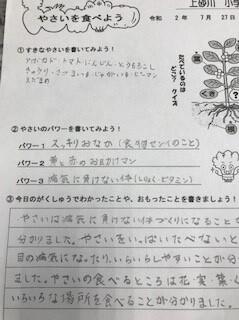 やさいを食べよう
令和 2年 7月 27日
上砂川 小学
①すきなやさいを書いてみよう!
アボカド・トマト・にんじん・とうもろこし
きゅうり・さつまいも・じゃがいも・ピーマン
えだまめ
たべているのは
どこ?クイズ
花
実
葉
茎
根
②やさいのパワーを書いてみよう!
パワー1 スッキリおなか(食物センイのこと)
パワー2 葉と赤のお助けマン
パワー3 病気に負けない体(しゅくビタミン)
③今日のがくしゅうでわかったことや、おもったことを書きましょう!
やさいは病気に負けない体づくりになること
分かりました。やさいをいっぱいたべないと
目の病気になったり、いらいらしやすいことが分
ました。やさいの食べるところは花・実・葉・
いろいろな場所を食べることが分かりました。